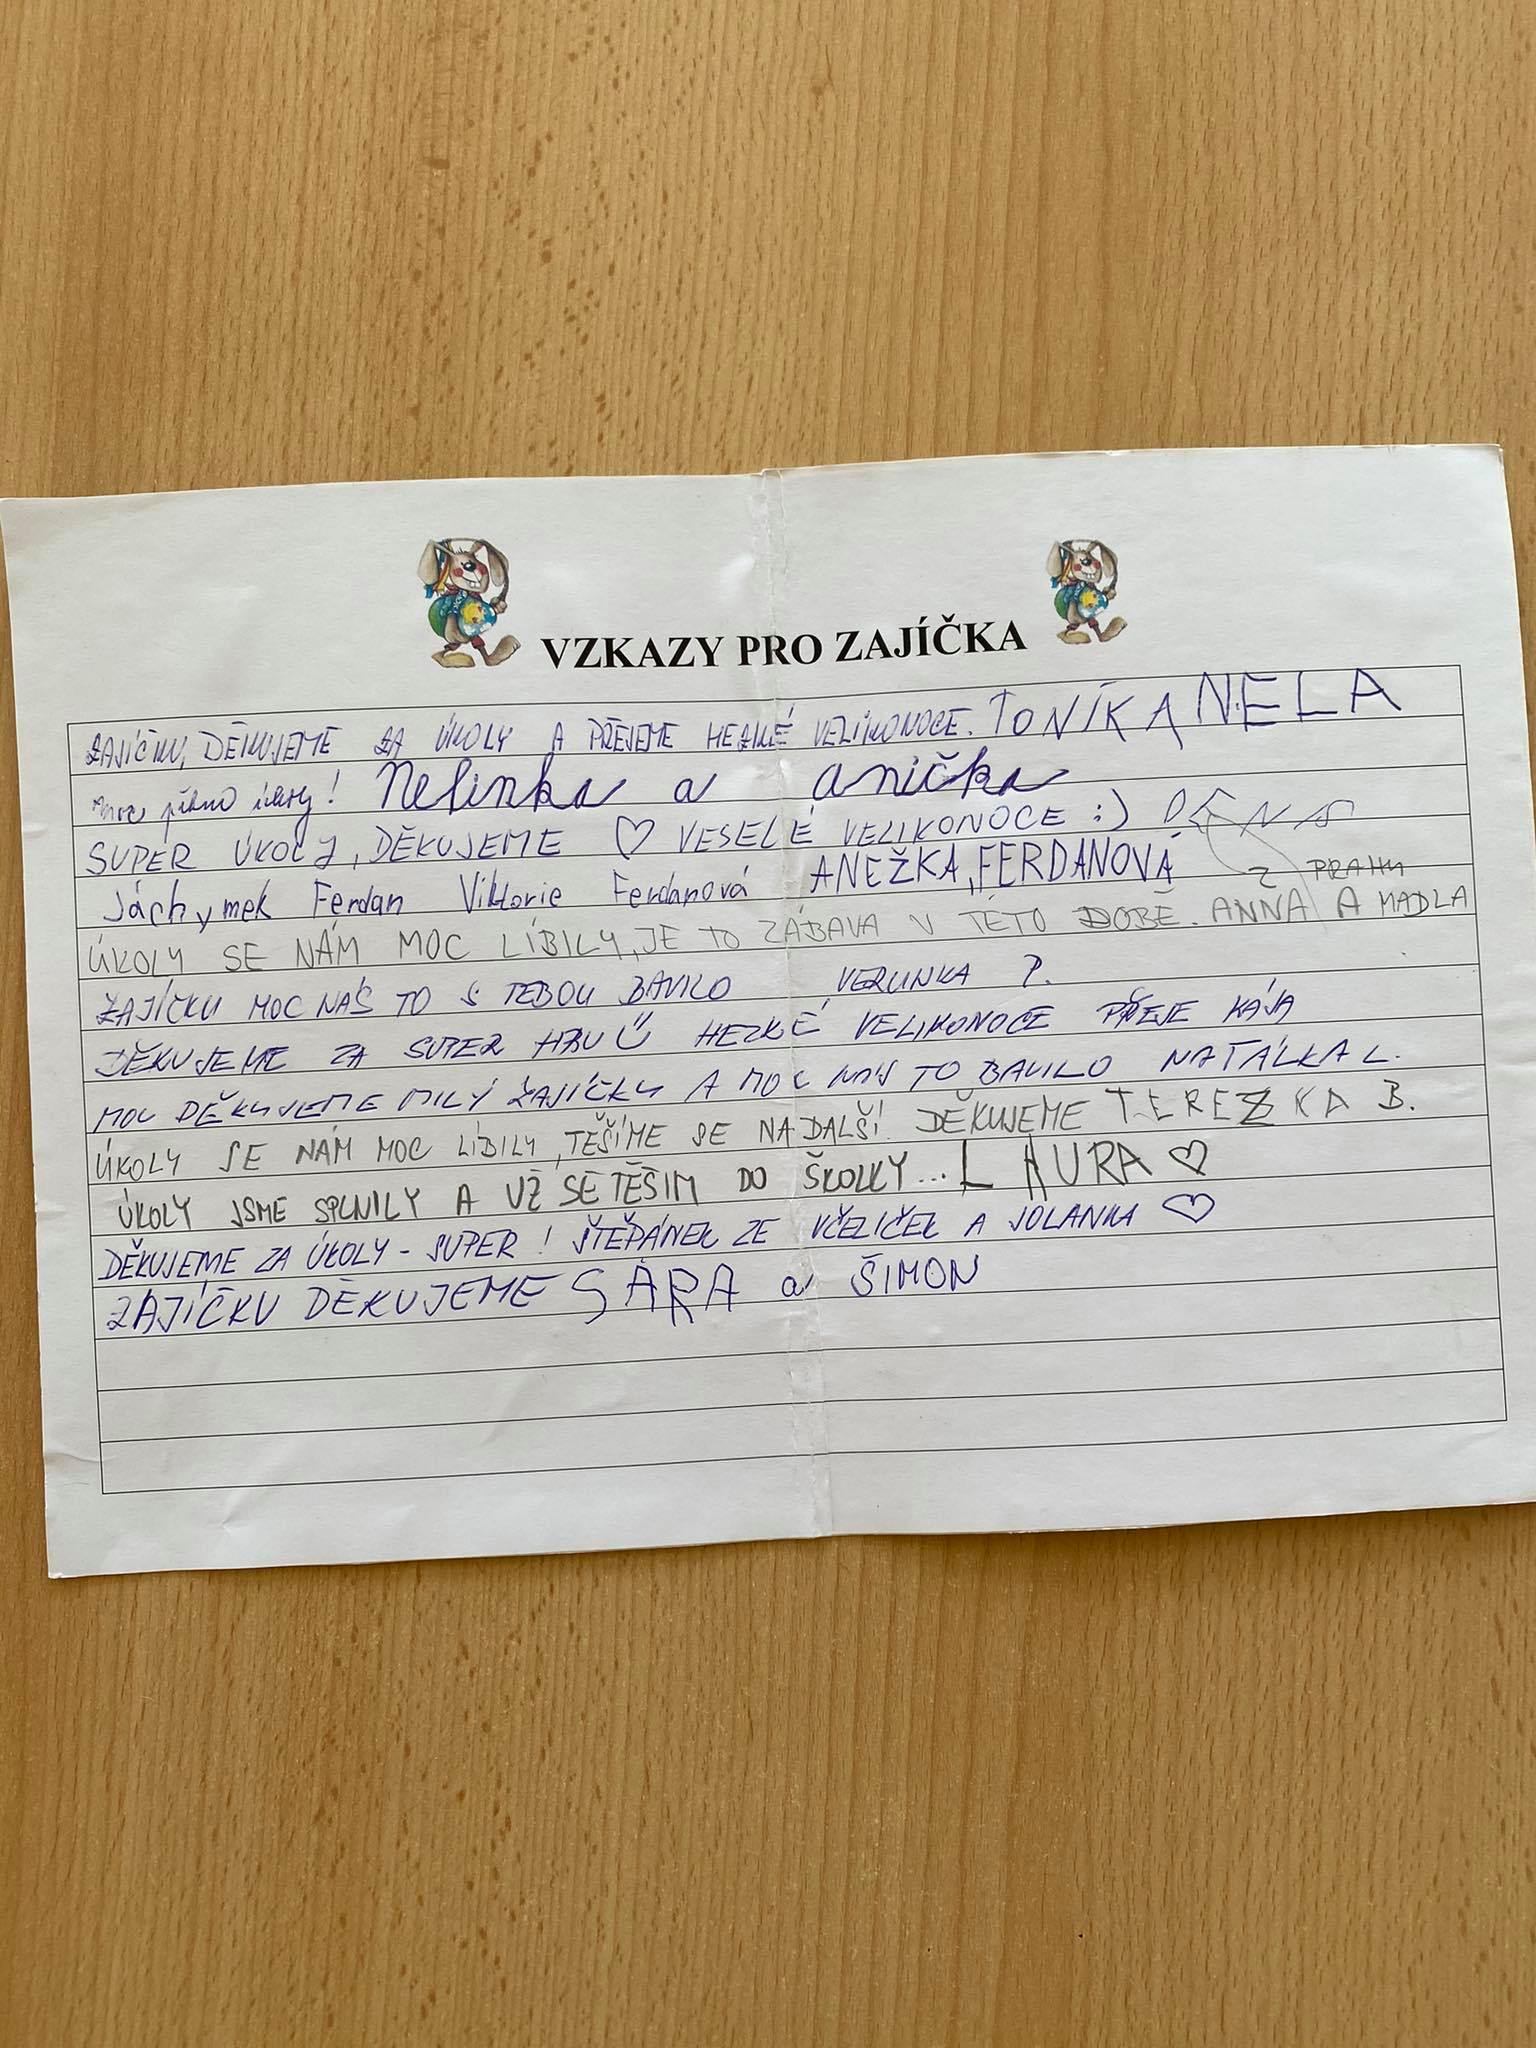 VZKAZY PRO ZAJÍČKA
ZAJÍČKU, DĚKUJEME ZA ÚKOLY A PŘEJEME HEZKÉ VELIKONOCE. TONÍKA NELA
moc pěkné úkoly! Nelinka a anička
SUPER ÚKOLY, DĚKUJEME ♡ VESELÉ VELIKONOCE :) DENIS
Jáchymek Ferdan Viktorie Ferdanová ANEŽKA, FERDANOVÁ Z PRAHY
ÚKOLY SE NÁM MOC LÍBILY, JE TO ZÁBAVA V TÉTO DOBĚ. ANNA A MADLA
ZAJÍČKU MOC NÁS TO S TEBOU BAVILO VERUNKA P.
DĚKUJEME ZA SUPER HRU HEZKÉ VELIKONOCE PŘEJE KÁJA
MOC DĚKUJEME MILÝ ZAJÍČKU A MOC NÁS TO BAVILO NATÁLKA L.
ÚKOLY SE NÁM MOC LÍBILY, TĚŠÍME SE NA DALŠÍ. DĚKUJEME TEREZKA B.
ÚKOLY JSME SPLNILY A UŽ SE TĚŠIM DO ŠKOLKY... LAURA ♡
DĚKUJEME ZA ÚKOLY - SUPER! ŠTĚPÁNEK ZE VČELIČEK A JOLANKA ♡
ZAJÍČKU DĚKUJEME SÁRA a ŠIMON